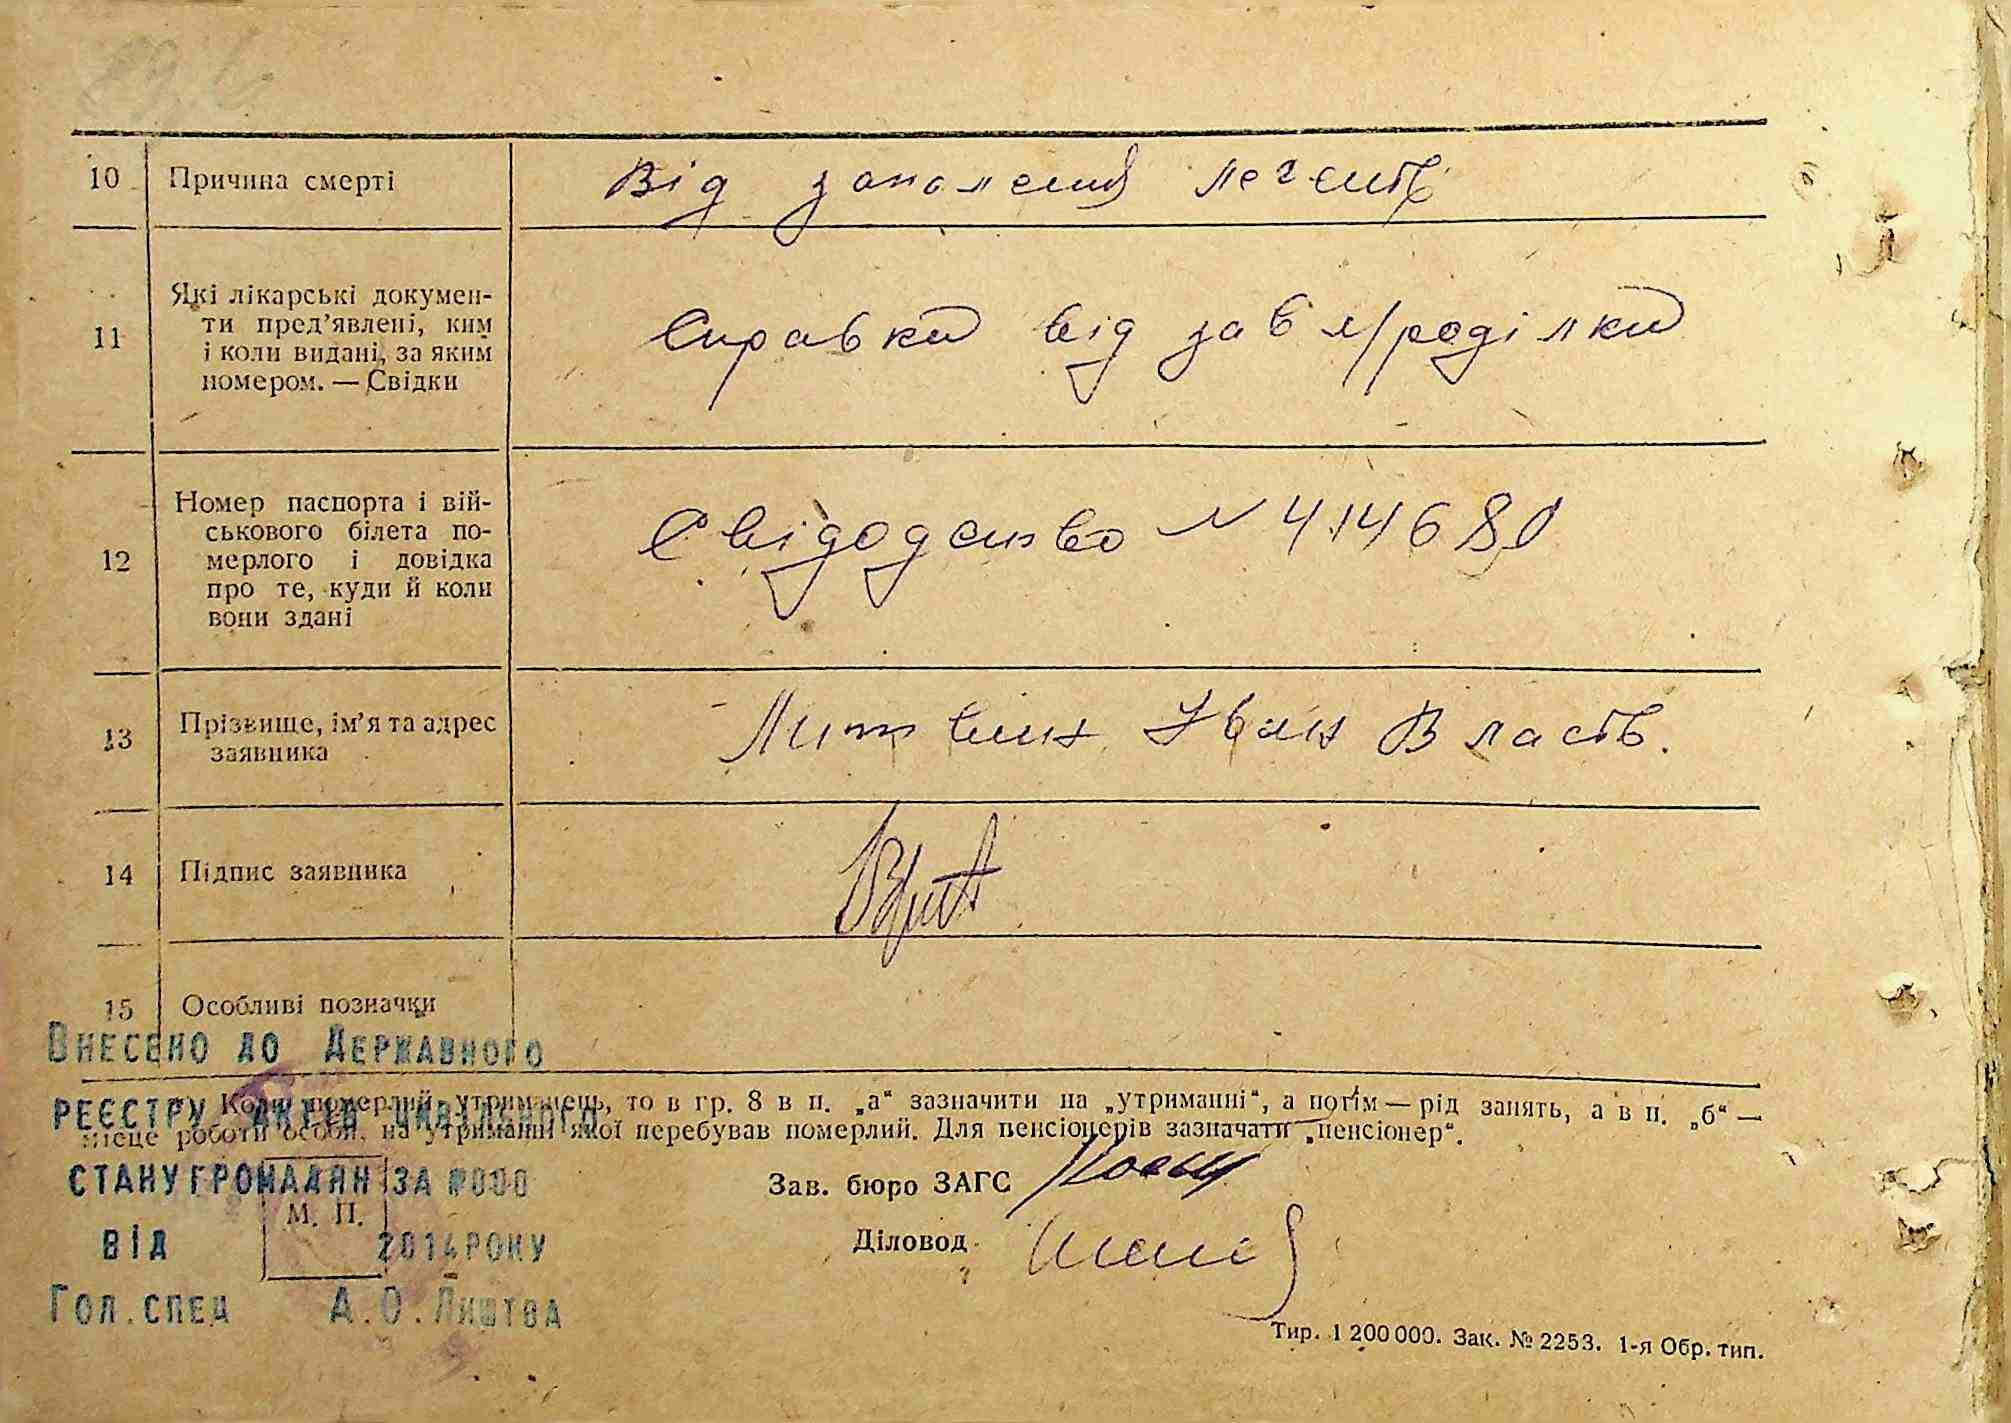 10 Причина смерті Від запалення легенів
11 Які лікарські докумен-
ти пред’явлені, ким
і коли видані, за яким
номером. — Свідки
Справка від зав м/роділки
12 Номер паспорта і вій-
ськового білета по-
мерлого і довідка
про те, куди й коли
вони здані
Свідодство N 414680
13 Прізвище, ім’я та адрес
заявника
Литвин Іван Власів.
14 Підпис заявника
15 Особливі позначки
Внесено до Державного
реєстру актів цивільного
стану громадян за №000
від 2014 року
Гол. спец А.О. Лиштва
*) Коли померлий утриманець, то в гр. 8 в п. „а“ зазначити на „утриманні“, а потім — рід занять, а в п. „б“ —
місце роботи особи, на утриманні якої перебував померлий. Для пенсіонерів зазначати „пенсіонер“.
М. П.
Зав. бюро ЗАГС
Діловод
Тир. 1 200 000. Зак. № 2253. 1-я Обр. тип.